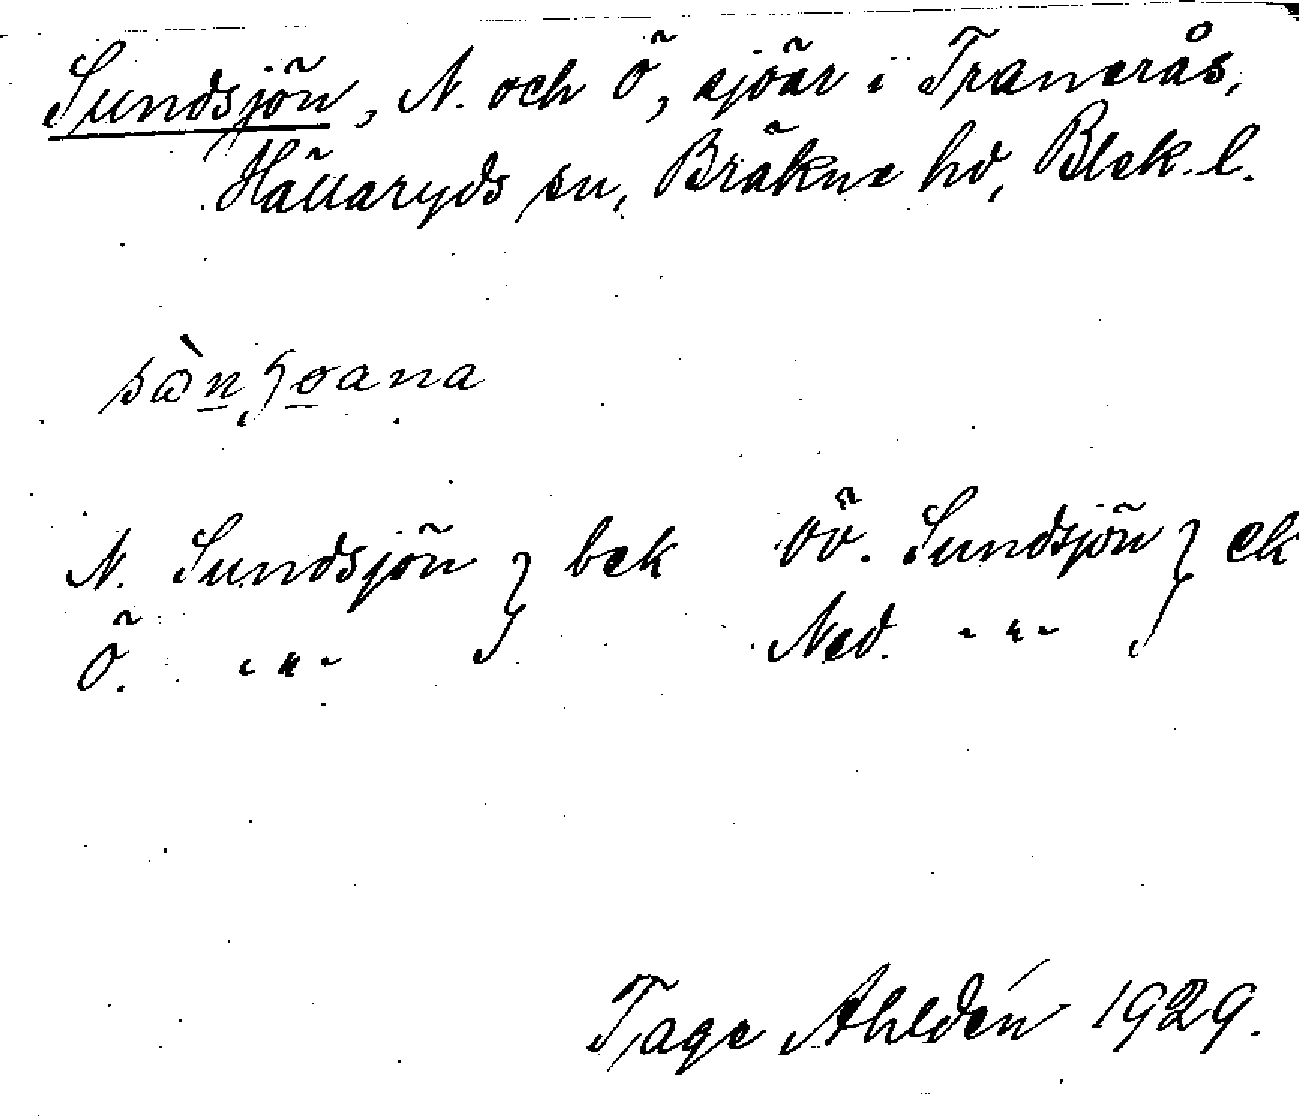 Sundsjön, N. och Ö, sjöar i Tranerås,
Hällaryds sn, Bräkne hd, Blek. l.
N. Sundsjön } bek öö. Sundsjön } ek
Ö. -"- Ned. -"-
Tage Ahldén 1929.